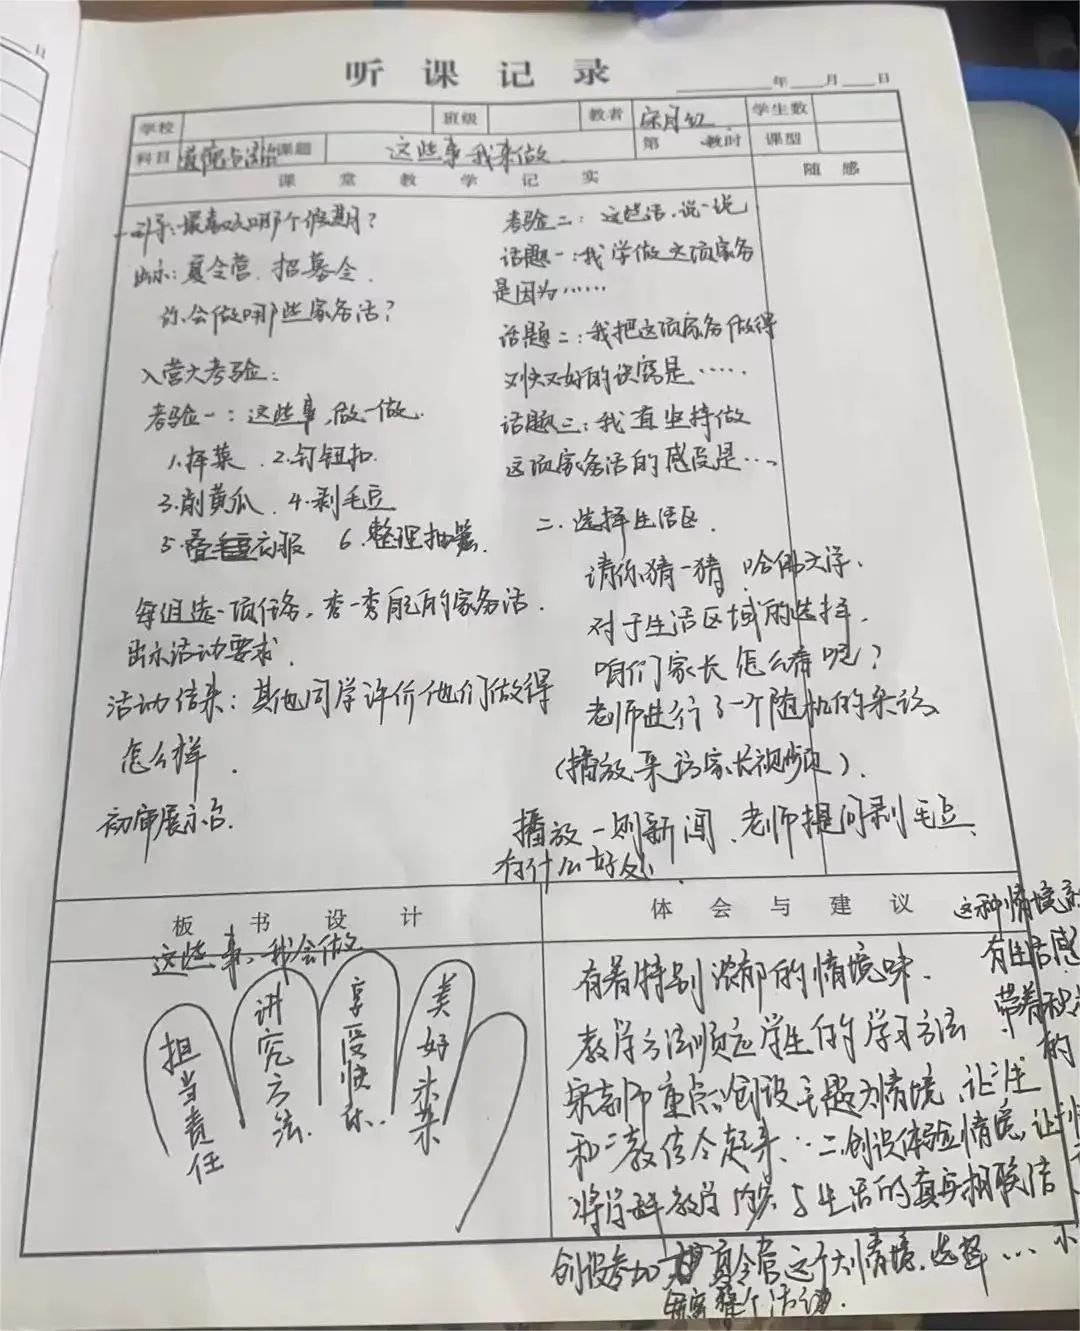 听课记录
年 月 日
学校 班级 教者 宋月红 学生数
科目 道德与法治 课题 这些事我来做 第 教时 课型
课堂教学记实 随感
一、引导:最喜欢哪个假期?
出示:夏令营、招募令.
你会做哪些家务活?
入营大考验:
考验一:这些事,做一做.
1.择菜 2.钉钮扣.
3.削黄瓜 4.剥毛豆
5.叠衣服 6.整理抽屉.
每组选一项任务,秀一秀自己的家务活.
出示活动要求.
活动结束:其他同学评价他们做得
怎么样.
初审展示台.
考验二:这些活,说一说
话题一:我学做这项家务
是因为……
话题二:我把这项家务做得
又快又好的诀窍是……
话题三:我一直坚持做
这项家务活的感受是…
二、选择生活区.
请你猜一猜 哈佛大学.
对于生活区域的选择.
咱们家长怎么看呢?
老师进行了一个随机的采访
(播放采访家长视频).
播放一则新闻,老师提问剥毛豆
有什么好处.
板书设计
这些事,我会做
担当责任
讲究方法
享受快乐
美好未来
体会与建议
有着特别浓郁的情境味.
教学方法顺应学生的学习方法
宋老师重点创设主题大情境,让
二、创设体验情境,让
将学科教学内容与生活的真实相联结
创设参加夏令营这个大情境,选择…
整个活动.
这种情境
有生活感
带着
的